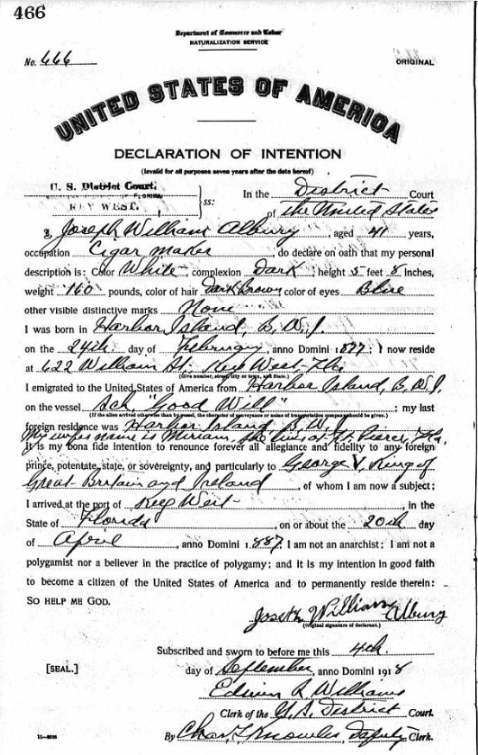 466
Department of Commerce and Labor
NATURALIZATION SERVICE
No. 666 ORIGINAL
UNITED STATES OF AMERICA
DECLARATION OF INTENTION
(Invalid for all purposes seven years after the date hereof)
U. S. District Court, In the District Court
OF FLORIDA
KEY WEST. ss: of The United States
I, Joseph William Albury, aged 41 years,
occupation Cigar maker, do declare on oath that my personal
description is: Color White, complexion Dark, height 5 feet 8 inches,
weight 160 pounds, color of hair Dark Brown, color of eyes Blue
other visible distinctive marks None
I was born in Harbor Island, B. W. I.
on the 24th day of February, anno Domini 1877; I now reside
at 622 William St., Key West, Fla.
(Give number, street, city or town, and State.)
I emigrated to the United States of America from Harbor Island, B. W. I.
on the vessel Sch. "Good Will"; my last
(If the alien arrived otherwise than by vessel, the character of conveyance or name of transportation company should be given.)
foreign residence was Harbor Island B. W. I.
My wife's name is Miriam, she lives at Ft. Pierce, Fla.
It is my bona fide intention to renounce forever all allegiance and fidelity to any foreign
prince, potentate, state, or sovereignty, and particularly to George V, King of
Great Britain and Ireland, of whom I am now a subject;
I arrived at the port of Key West, in the
State of Florida, on or about the 20th day
of April, anno Domini 1887; I am not an anarchist; I am not a
polygamist nor a believer in the practice of polygamy; and it is my intention in good faith
to become a citizen of the United States of America and to permanently reside therein:
SO HELP ME GOD.
Joseph William Albury
(Original signature of declarant.)
Subscribed and sworn to before me this 4th
[SEAL.] day of September, anno Domini 1918
Edwin R. Williams
Clerk of the U.S. District Court.
By Chas. T. Knowles, Deputy Clerk.